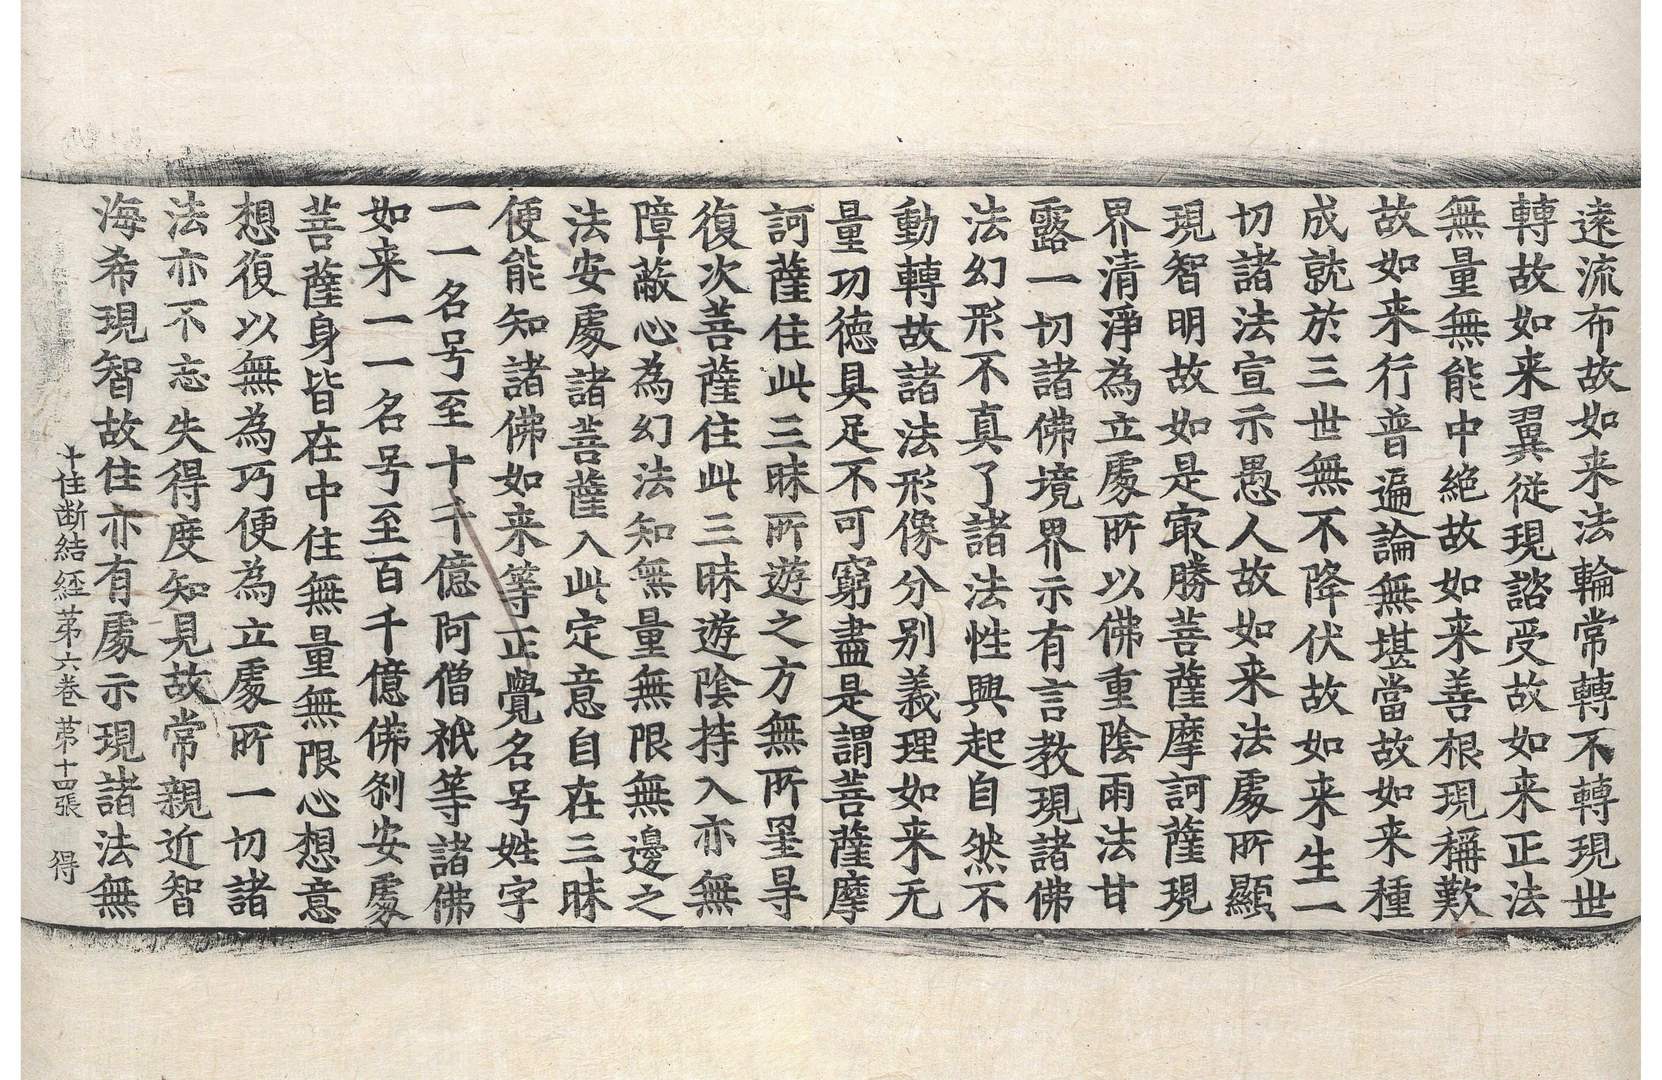 遠流布故如来法輪常轉不轉現世
轉故如来翼從現諮受故如来正法
無量無能中絶故如来善根現稱歎
故如来行普遍論無堪當故如来種
成就於三世無不降伏故如来生一
切諸法宣示愚人故如来法處所顯
現智明故如是㝡勝菩薩摩訶薩現
界清淨為立處所以佛重陰雨法甘
露一切諸佛境界示有言教現諸佛
法幻形不真了諸法性興起自然不
動轉故諸法形像分别義理如来无
量功德具足不可窮盡是謂菩薩摩
訶薩住此三昧所遊之方無所罣㝵
復次菩薩住此三昧遊陰持入亦無
障蔽心為幻法知無量無限無邊之
法安處諸菩薩入此定意自在三昧
便能知諸佛如来等正覺名号姓字
一一名号至十千億阿僧祇等諸佛
如来一一名号至百千億佛刹安處
菩薩身皆在中住無量無限心想意
想復以無為巧便為立處所一切諸
法亦不忘失得度知見故常親近智
海希現智故住亦有處示現諸法無
十住断結経苐六卷 苐十四張 得